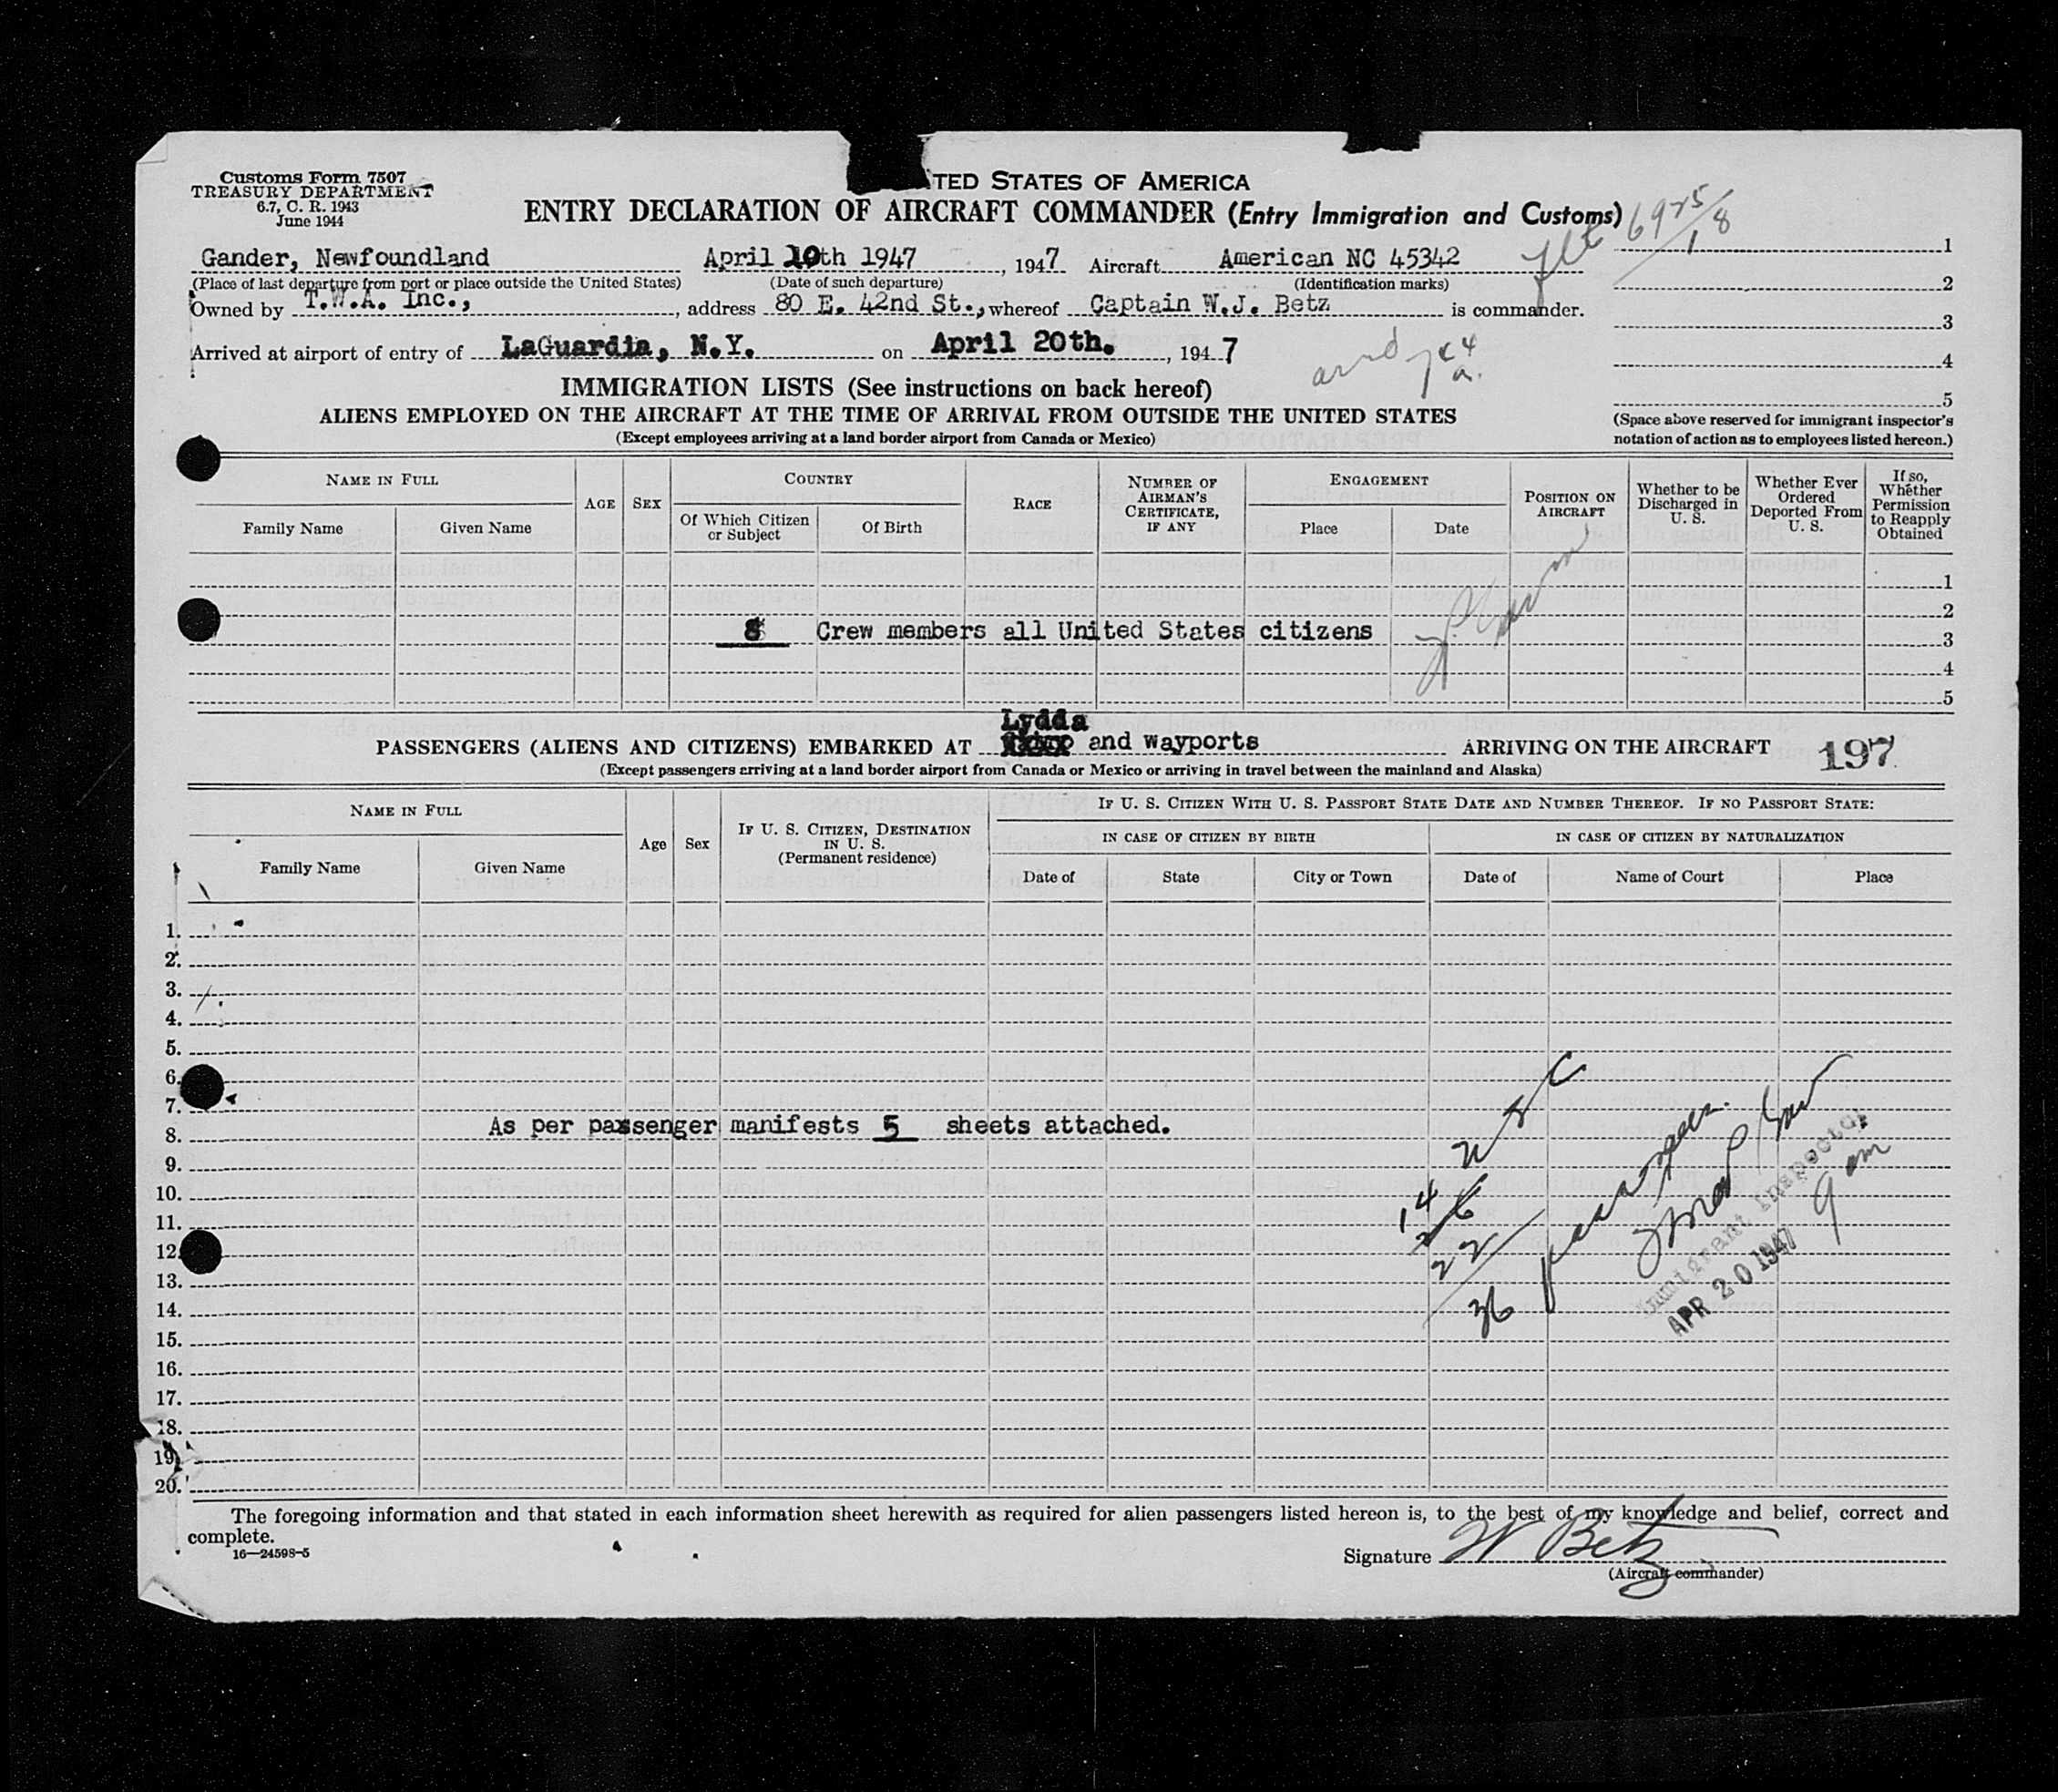 Customs Form 7507
TREASURY DEPARTMENT
6.7, C. R. 1943
June 1944
TED STATES OF AMERICA
ENTRY DECLARATION OF AIRCRAFT COMMANDER (Entry Immigration and Customs)
Gander, Newfoundland April 20th 1947, 1947 Aircraft American NC 45342
(Place of last departure from port or place outside the United States) (Date of such departure) (Identification marks)
Owned by T.W.A. Inc., , address 80 E. 42nd St., whereof Captain W.J. Betz is commander.
Arrived at airport of entry of LaGuardia, N.Y. on April 20th. , 1947
1
2
3
4
5
(Space above reserved for immigrant inspector's
notation of action as to employees listed hereon.)
IMMIGRATION LISTS (See instructions on back hereof)
ALIENS EMPLOYED ON THE AIRCRAFT AT THE TIME OF ARRIVAL FROM OUTSIDE THE UNITED STATES
(Except employees arriving at a land border airport from Canada or Mexico)
NAME IN FULL
Family Name Given Name
AGE SEX
COUNTRY
Of Which Citizen or Subject
Of Birth
RACE
NUMBER OF AIRMAN'S CERTIFICATE, IF ANY
ENGAGEMENT
Place Date
POSITION ON AIRCRAFT
Whether to be Discharged in U. S.
Whether Ever Ordered Deported From U. S.
If so, Whether Permission to Reapply Obtained
1
2
8 Crew members all United States citizens 3
4
5
Lydda
PASSENGERS (ALIENS AND CITIZENS) EMBARKED AT and wayports ARRIVING ON THE AIRCRAFT 197
(Except passengers arriving at a land border airport from Canada or Mexico or arriving in travel between the mainland and Alaska)
NAME IN FULL
Family Name Given Name
Age Sex
IF U. S. CITIZEN, DESTINATION IN U. S.
(Permanent residence)
IF U. S. CITIZEN WITH U. S. PASSPORT STATE DATE AND NUMBER THEREOF. IF NO PASSPORT STATE:
IN CASE OF CITIZEN BY BIRTH IN CASE OF CITIZEN BY NATURALIZATION
Date of State City or Town Date of Name of Court Place
1.
2.
3.
4.
5.
6.
7.
8. As per passenger manifests 5 sheets attached.
9.
10.
11.
12.
13.
14.
15.
16.
17.
18.
19.
20.
14 U S C
22
36 passengers
Immigrant Inspector
APR 20 1947
9 am
The foregoing information and that stated in each information sheet herewith as required for alien passengers listed hereon is, to the best of my knowledge and belief, correct and
complete.
16—24598-5
Signature W Betz
(Aircraft commander)